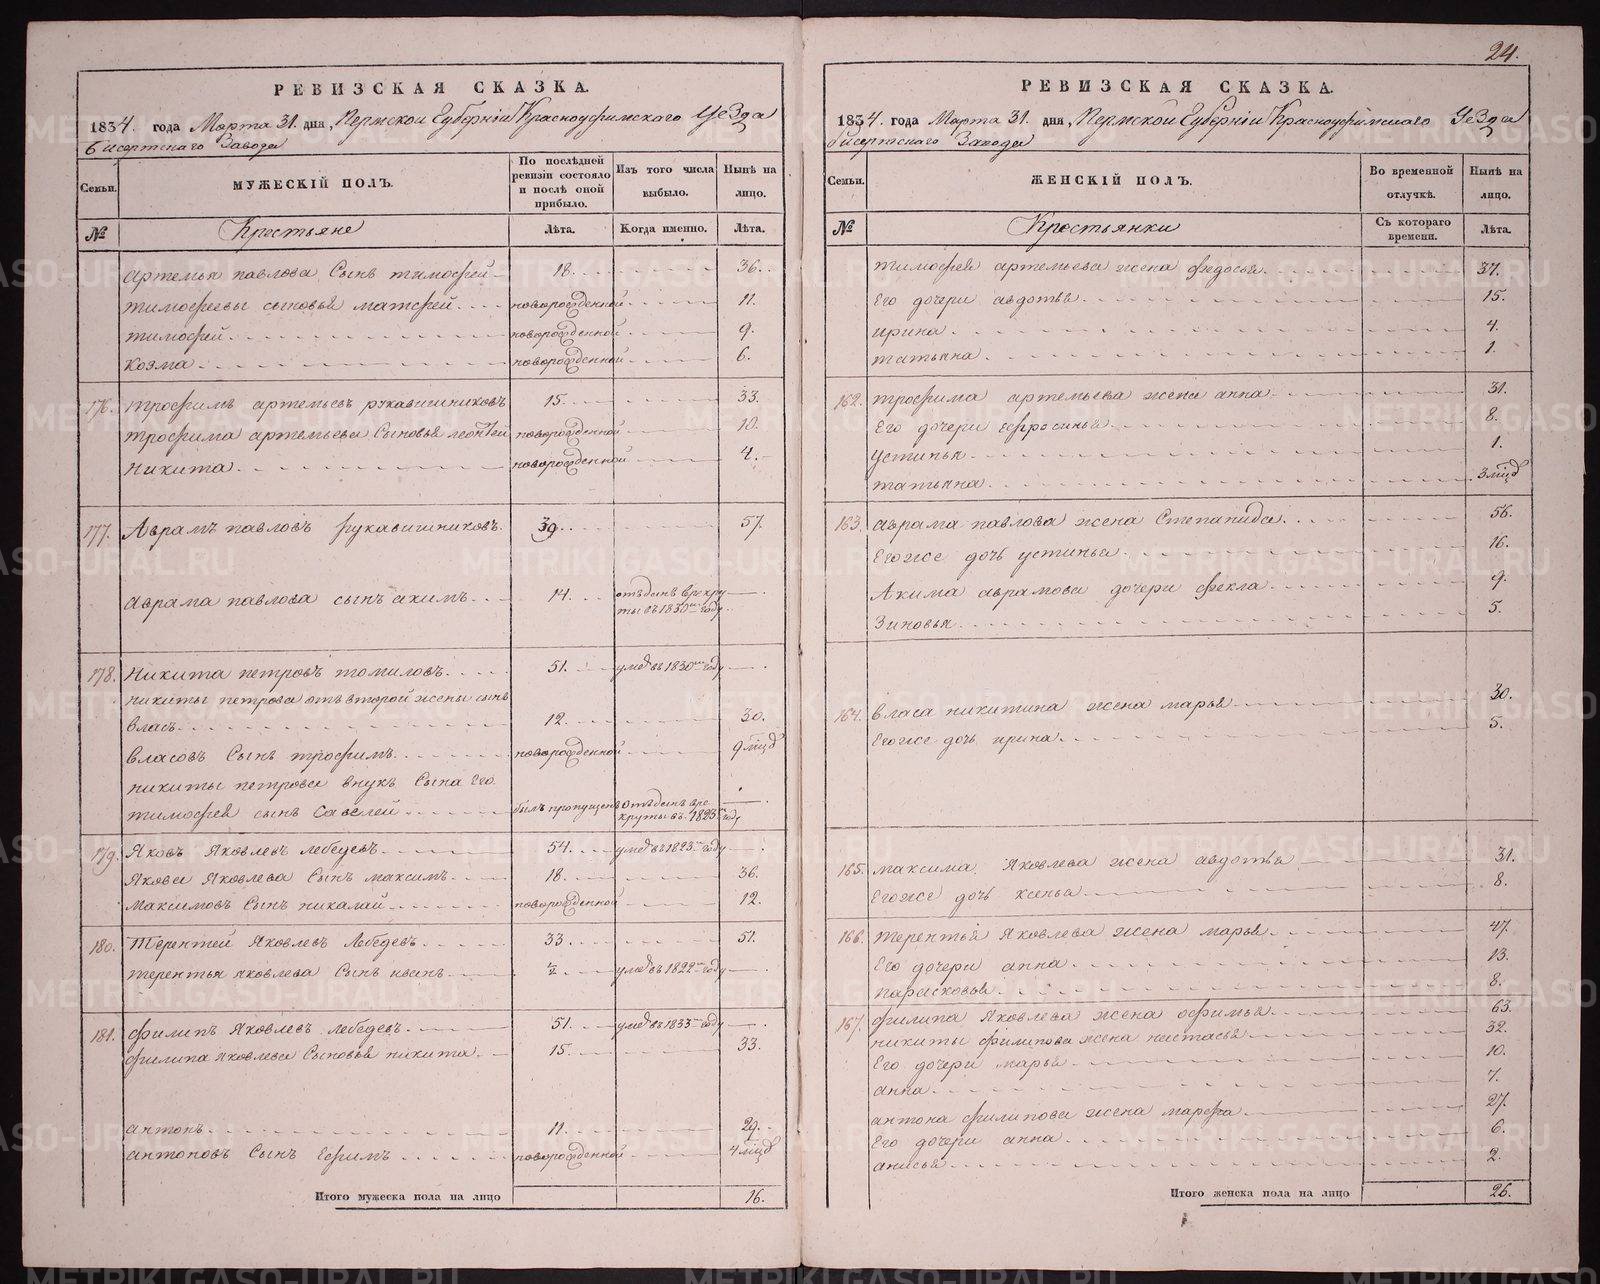 24.
РЕВИЗСКАЯ СКАЗКА.
1834. года Марта 31. дня, Пермской Губернiи Красноуфимского Уезда
бисертского Завода
Семьи.
МУЖЕСКIЙ ПОЛЪ.
По послѣдней ревизiи состояло и послѣ оной прибыло.
Изъ того числа выбыло.
Нынѣ на лицо.
№
Крестьяне
Лѣта.
Когда именно.
Лѣта.
Артемья павлова Сынъ тимофей 18. 36.
тимофеевы сыновья матфей новорожденной 11.
тимофей новорожденной 9.
козма новорожденной 6.
176. трофимъ артемьевъ рукавишниковъ 15. 33.
трофима артемьева Сыновья леонтей новорожденной 10.
никита новорожденной 4.
177. Аврамъ павловъ рукавишниковъ. 39. 57.
аврама павлова сынъ акимъ 14. отъданъ врекру
ты въ 1830м году
178. Никита петровъ томиловъ 51. умѣ въ 1830м году
никиты петрова отъ второй жены сынъ
власъ 12. 30.
власовъ Сынъ трофимъ новорожденной 9 мцѣ
никиты петрова внукъ Сына Его
тимофея сынъ Савелей былъ пропущенъ отъданъ вре
круты въ 1823м году
179. Яковъ Яковлевъ лебедевъ 54. умѣ въ 1823м году
Якова Яковлева Сынъ максимъ 18. 36.
Максимовъ Сынъ николай новорожденной 12.
180. Терентей Яковлевъ Лебедевъ 33 51.
терентья яковлева Сынъ иванъ 1/2 умѣ въ 1822м году
181. филипъ Яковлевъ лебедевъ 51. умѣ въ 1833м году
филипа яковлева Сыновья никита 15. 33.
антонъ 11. 29.
антоновъ Сынъ Ефимъ новорожденной 4 мцѣ
Итого мужеска пола на лицо 16.
РЕВИЗСКАЯ СКАЗКА.
1834. года Марта 31. дня, Пермской Губернiи Красноуфимского Уезда
бисертского Завода
Семьи.
ЖЕНСКIЙ ПОЛЪ.
Во временной отлучкѣ.
Нынѣ на лицо.
№
Крестьянки
Съ котораго времени.
Лѣта.
тимофея артемьева жена федосья 37.
Его дочери авдотья 15.
ирина 4.
татьяна 1.
162. трофима артемьева жена анна 31.
Его дочери ефросинья 8.
устинья 1.
татьяна 3 мцѣ
163. аврама павлова жена Степанида 56.
Егоже дочь устинья 16.
Акима аврамова дочери фекла 9.
Зиновья 5.
164. власа никитина жена марья 30.
Егоже дочь ирина 5.
165. максима Яковлева жена авдотья 31.
Егоже дочь ксенья 8.
166. терентья Яковлева жена марья 47.
Его дочери анна 13.
парасковья 8.
167. филипа Яковлева жена офимья 63.
никиты филипова жена настасья 32.
Его дочери марья 10.
анна 7.
антона филипова жена марфа 27.
Его дочери анна 6.
анисья 2.
Итого женска пола на лицо 26.
METRIKI.GASO-URAL.RU